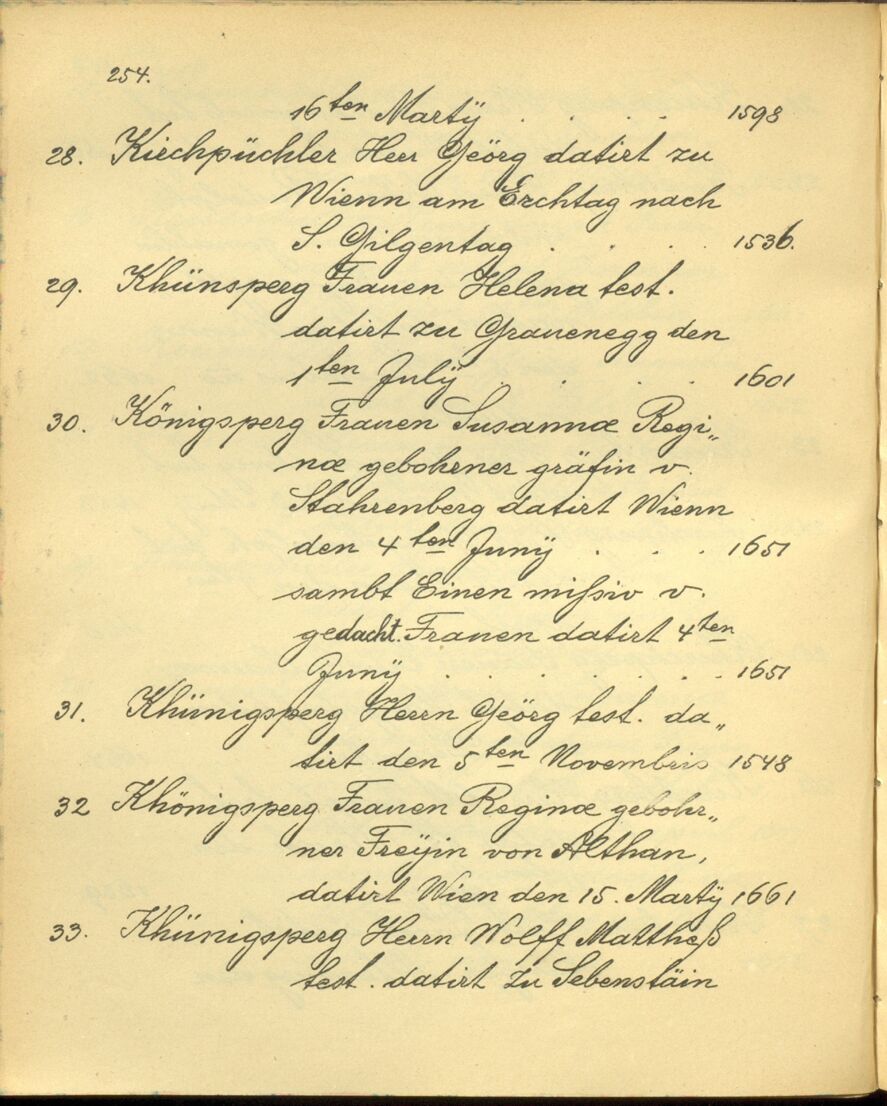 254.
16ten Martÿ . . . . 1598
28. Kirchpüchler Herr Geörg datirt zu
Wienn am Erchtag nach
S. Gilgentag . . . . 1536.
29. Khünsperg Frauen Helena test.
datirt zu Grauenegg den
1ten Julÿ . . . . 1601
30. Königsperg Frauen Susannæ Regi„
næ gebohrner gräfin v.
Stahrenberg datirt Wienn
den 4ten Junÿ . . . 1651
sambt Einen mißiv v.
gedacht. Frauen datirt 4ten
Junÿ . . . . . . . 1651
31. Khünigsperg Herrn Geörg test. da„
tirt den 5ten Novembris 1548
32 Khönigsperg Frauen Reginæ gebohr„
ner Freÿin von Althan,
datirt Wien den 15. Martÿ 1661
33. Khünigsperg Herrn Wolff Mattheß
test. datirt zu Sebenstäin